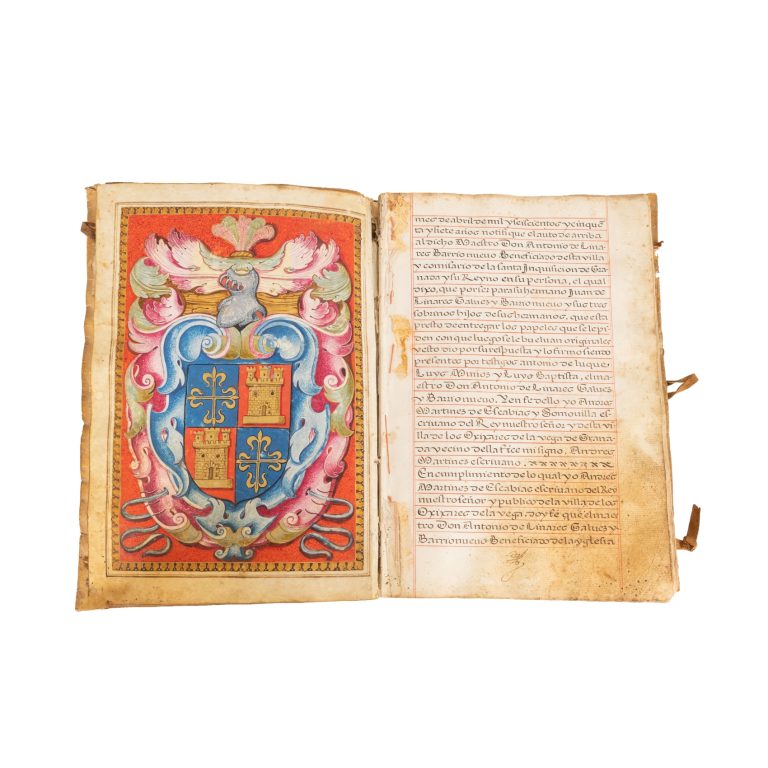 mes de abril de mil y seiscientos y cinquē
ta y siete años notifiq̄ el auto de arriba
al dicho Maestro Don Antonio de Lina
res Barrionuevo Beneficiado desta villa
y comisario de la santa Inquisicion de Gra
nada y su Reyno en su persona, el qual
dixo, que por ser para su hermano Juan de
Linares Galvez y Barrionuevo y sus tres
sobrinos hijos de sus hermanos, que esta
presto de entregar los papeles que se le pi
den con que luego se le buelvan originales
y esto dio por su respuesta y lo firmo siendo
presentes por testigos antonio de luque
Luys Muños y Luys Baptista, el ma
estro Don Antonio de Linares Galvez
y Barrionuevo. Yen fe dello yo Andres
Martines de Escabias y
criuano del Rey nuestro señor y desta vi
lla de los Oxixares de la vega de Grana
da y vecino della fice mi signo, Andres
Martines escriuano.
En cumplimiento de lo qual yo Andres
Martines de Escabias escriuano del Rei
nuestro señor y publico de la villa de los
Oxixares de la vega, doy fe que el maes
tro Don Antonio de Linares Galvez y
Barrionuevo Beneficiado de la yglesia